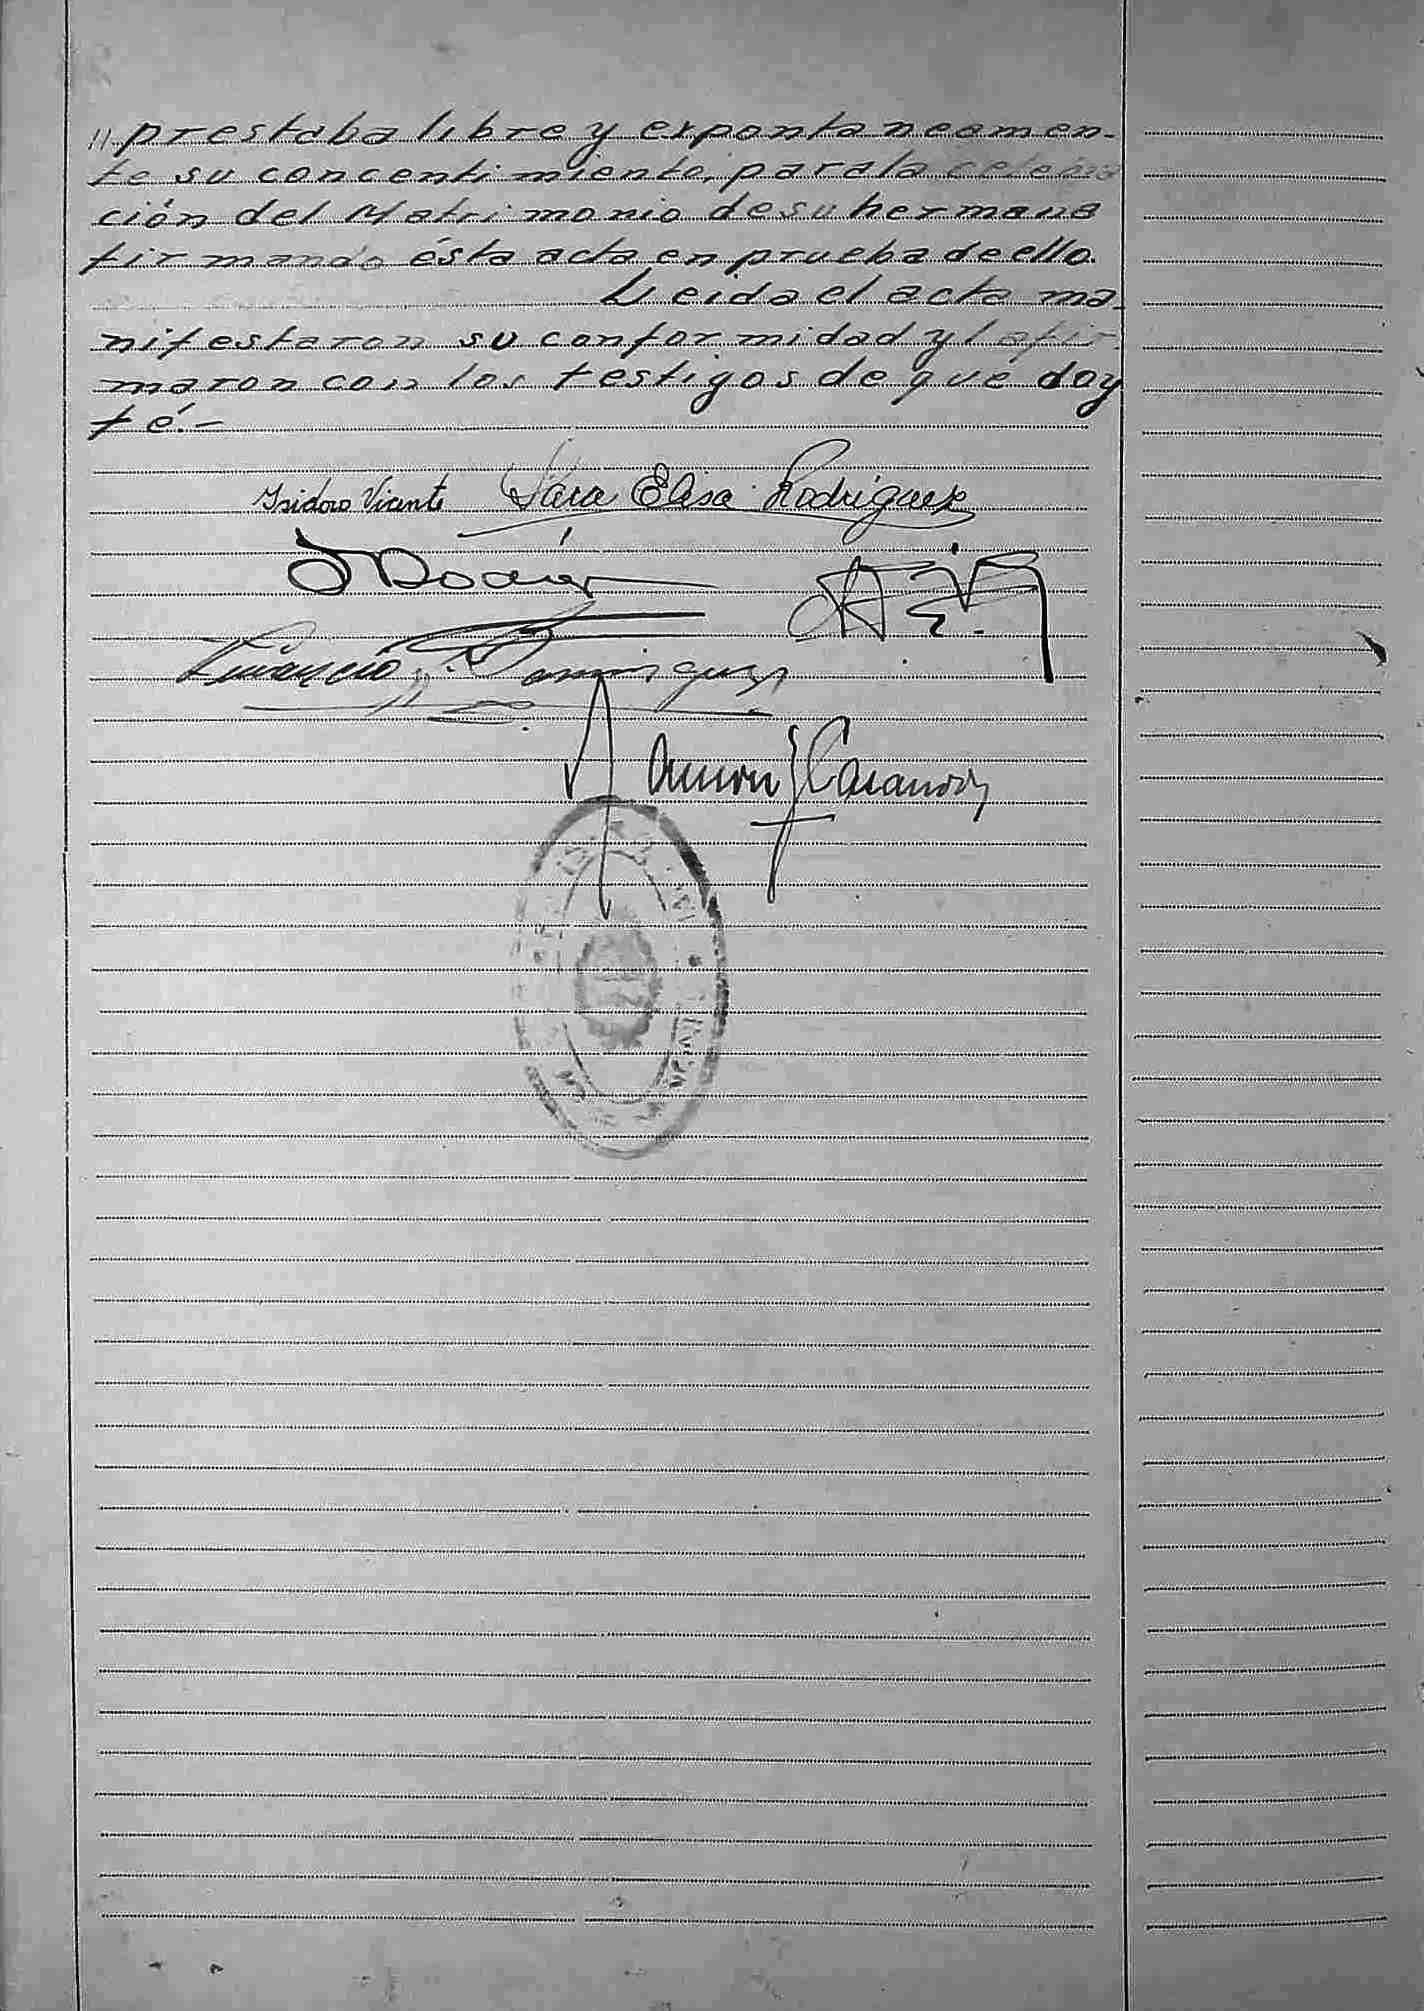 "prestaba libre y expontaneamen-
te su concentimiento, para la celebra
ción del Matrimonio de su hermana
firmando ésta acta en prueba de ello.
Leida el acta ma-
nifestaron su conformidad y la fir-
maron con los testigos de que doy
fé.-
Isidoro Vicente Sara Elisa Rodriguez
Dominguez
Ramon Casanova